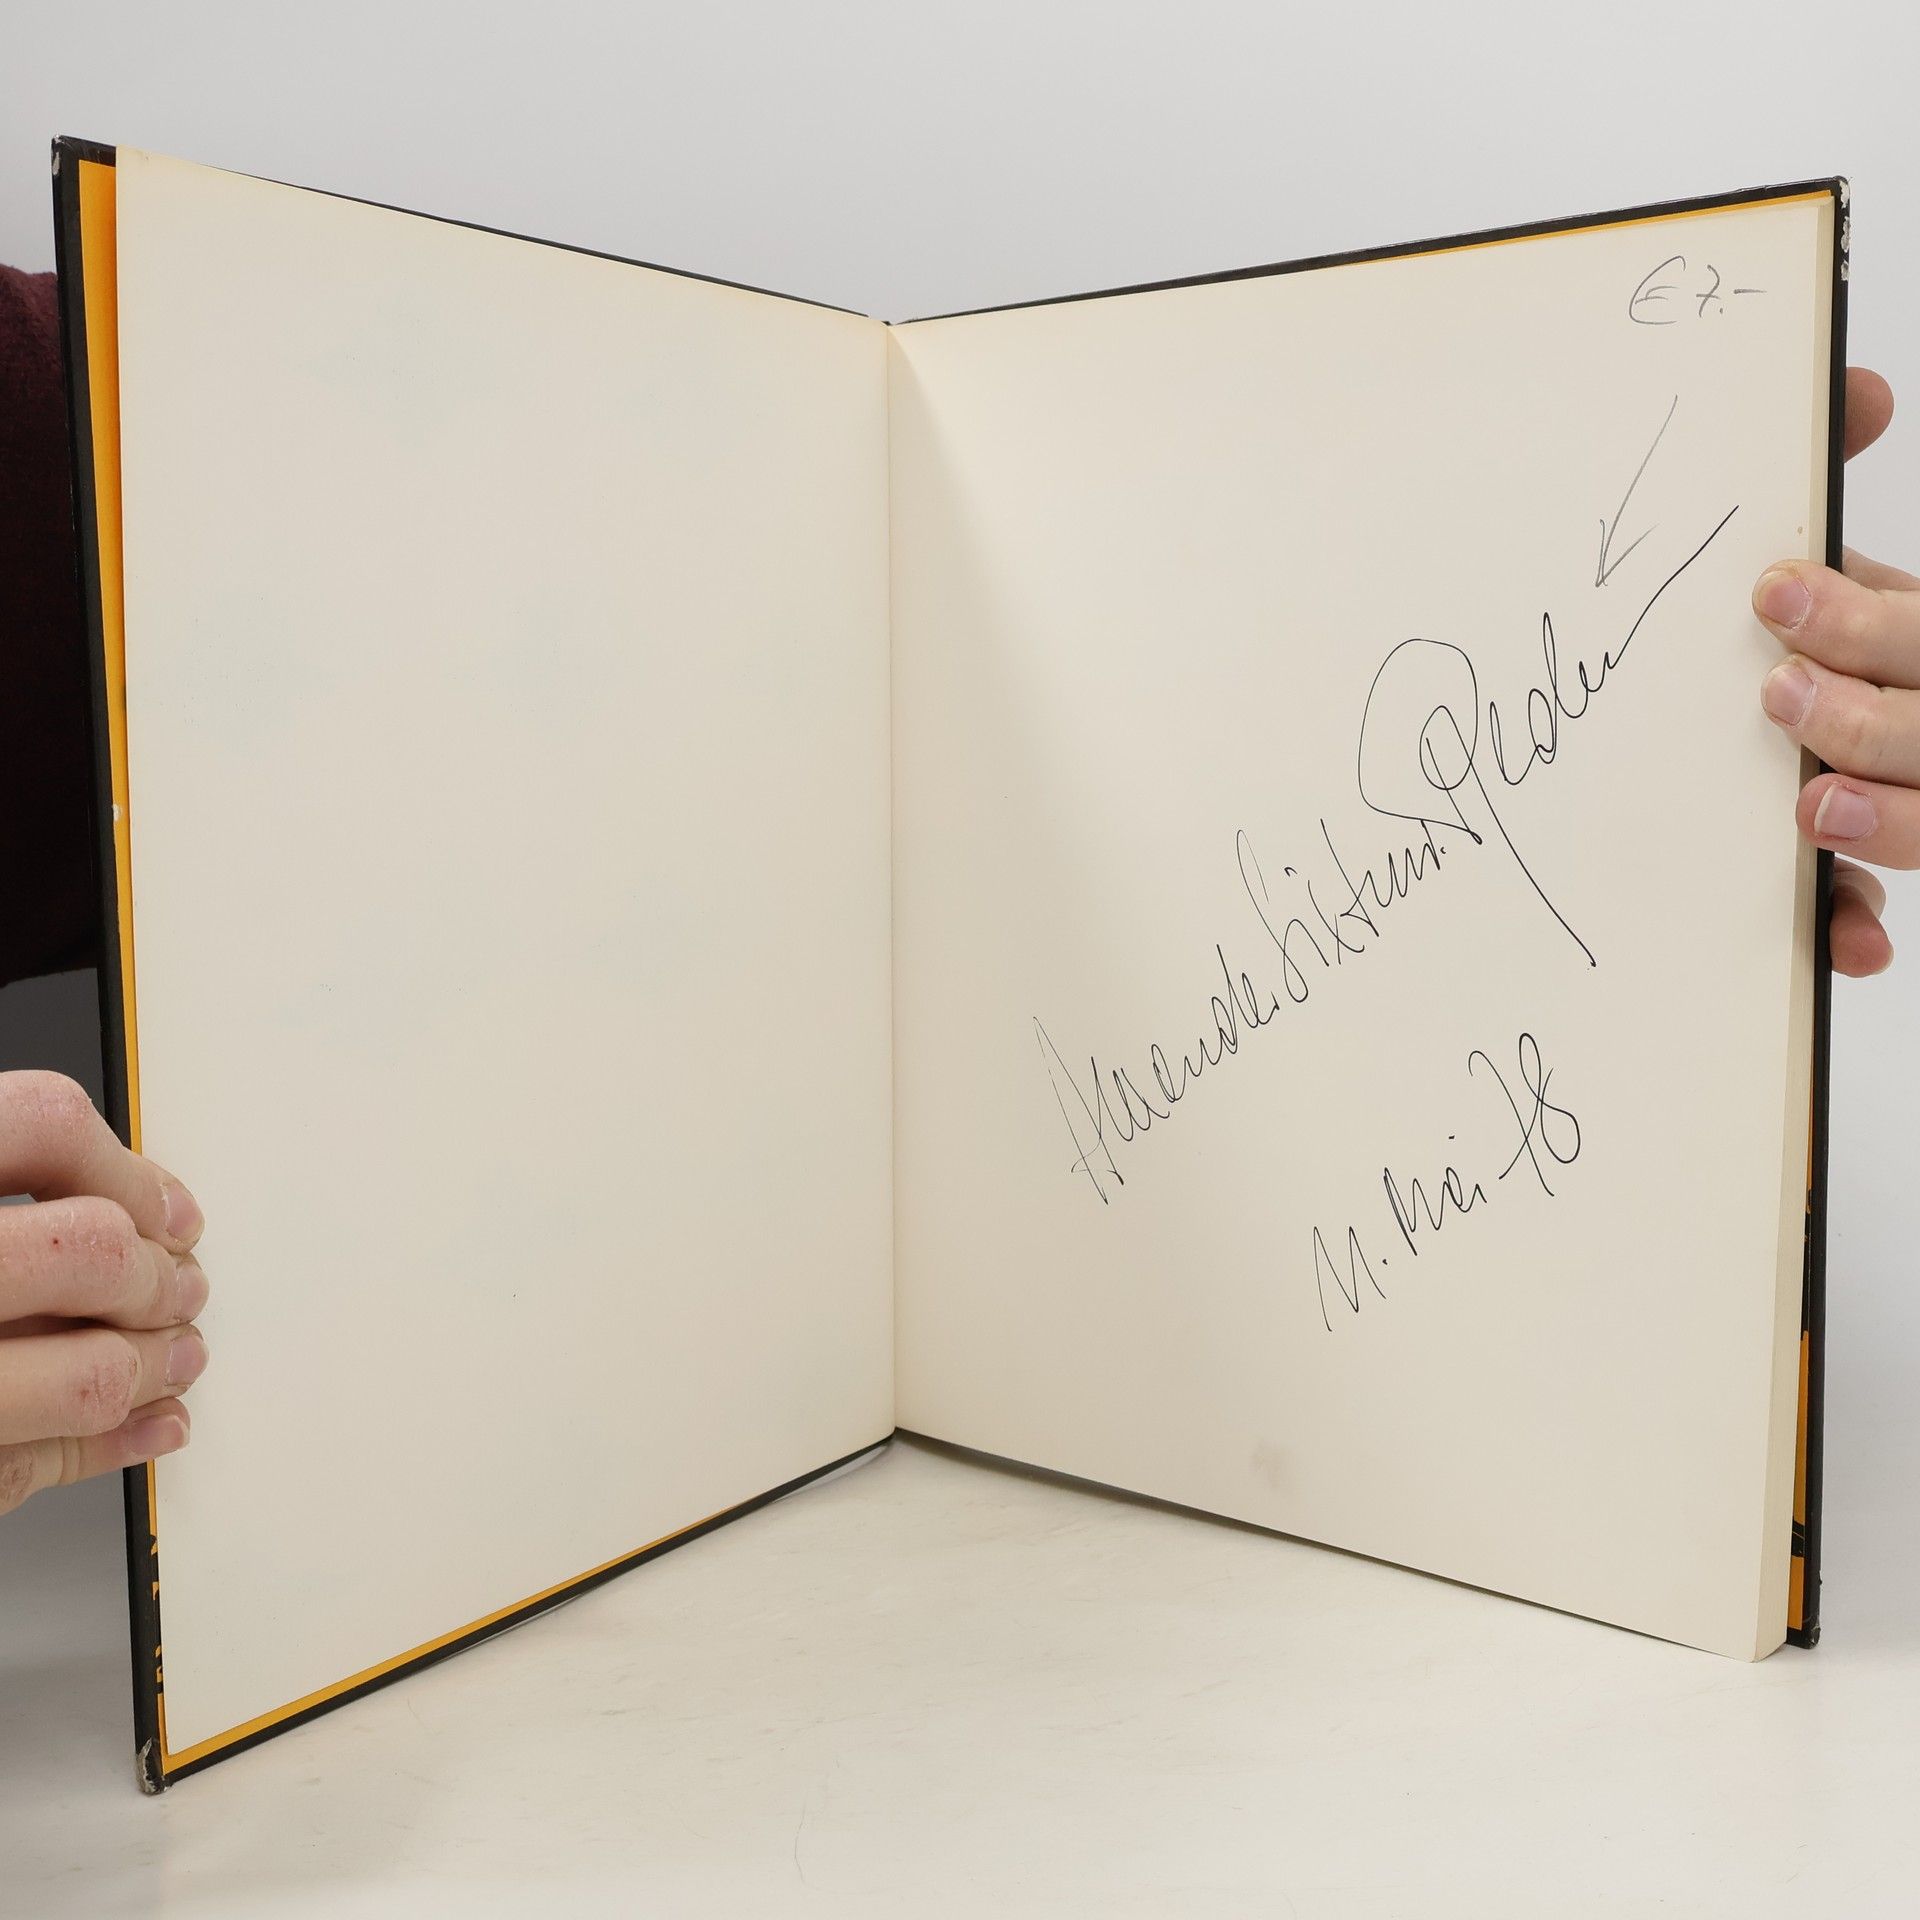 € 7.-
Alexander Sixtus v. Reden
M. Mai 78